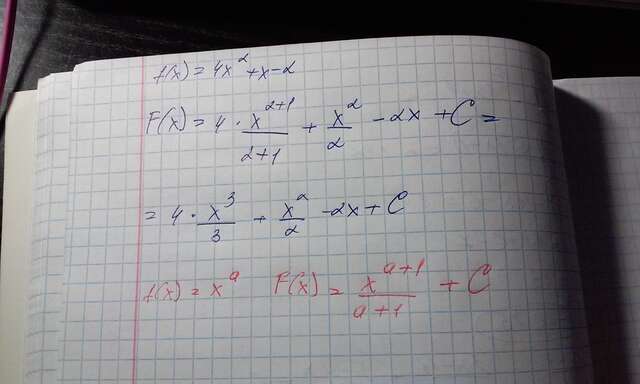 f(x) = 4x² + x - 2
F(x) = 4 · x^(2+1)/(2+1) + x²/2 - 2x + C =
= 4 · x³/3 + x²/2 - 2x + C
f(x) = x^a F(x) = x^(a+1)/(a+1) + C